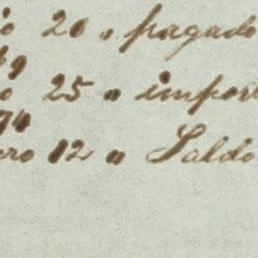 io 20 " pagado
79
o 25 " import
74
ero 12 " Saldo